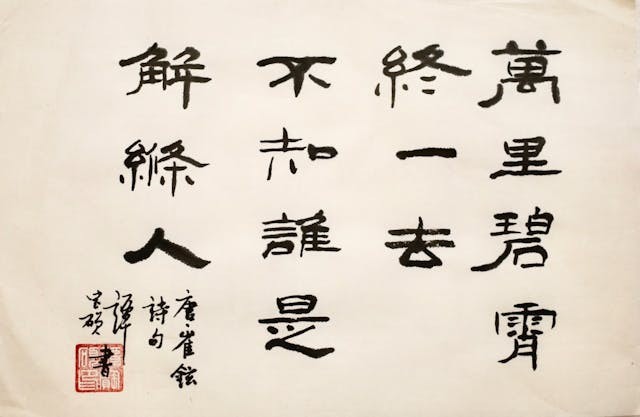 萬里碧霄
終一去
不知誰是
解縧人
唐崔鉉
詩句
譚
宝碩
書